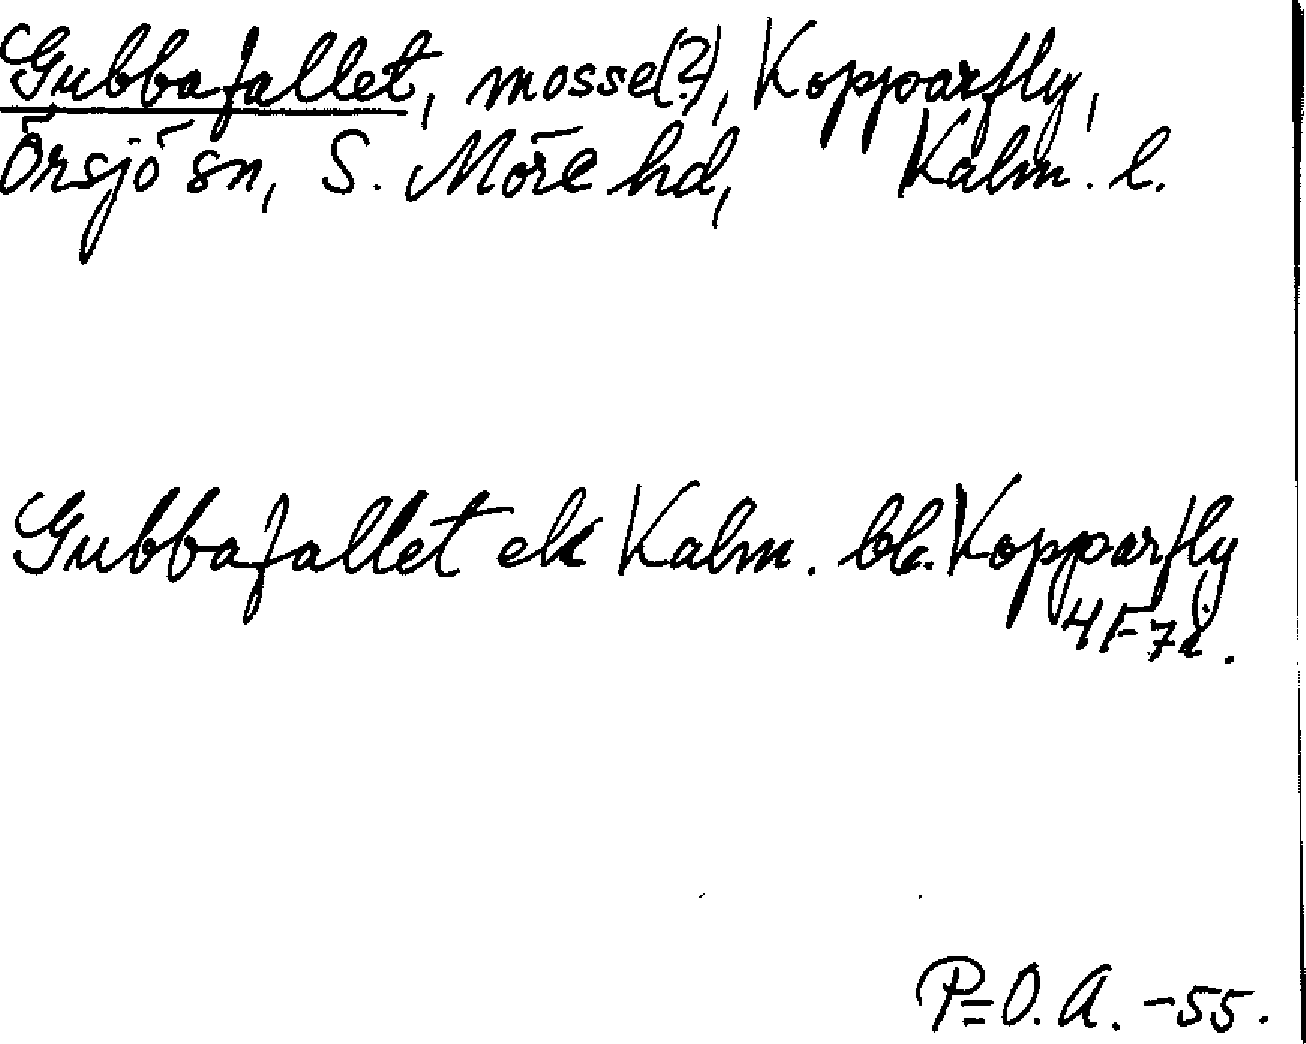 Gubbafallet, mosse(?), Kopparfly,
Örsjö sn, S. Möre hd, Kalm. l.
Gubbafallet ek Kalm. bl. Kopparfly
4F7i.
P=O.A. -55.